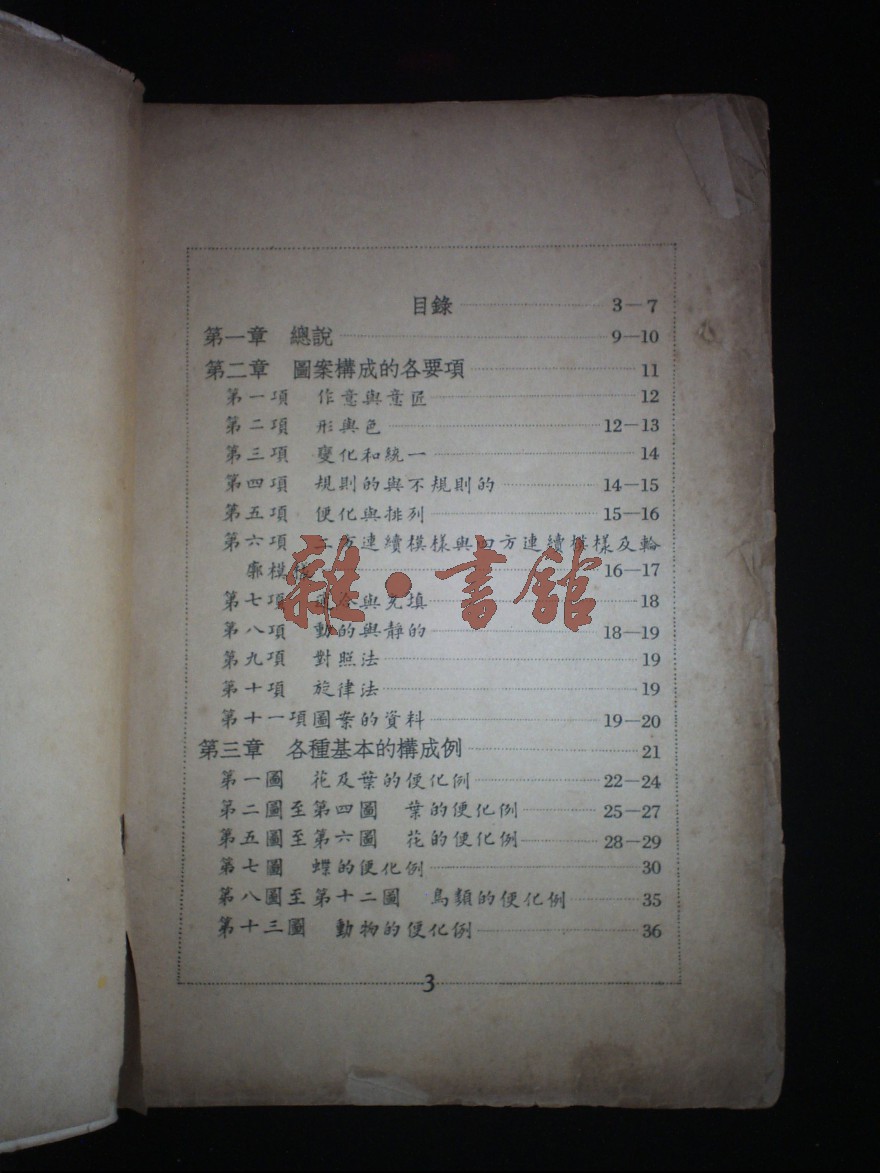 目錄 3—7
第一章 總說 9—10
第二章 圖案構成的各要項 11
第一項 作意與意匠 12
第二項 形與色 12—13
第三項 變化和統一 14
第四項 規則的與不規則的 14—15
第五項 便化與排列 15—16
第六項 二方連續模樣與四方連續模樣及輪
廓模樣 16—17
第七項 適合與充填 18
第八項 動的與靜的 18—19
第九項 對照法 19
第十項 旋律法 19
第十一項圖案的資料 19—20
第三章 各種基本的構成例 21
第一圖 花及葉的便化例 22—24
第二圖至第四圖 葉的便化例 25—27
第五圖至第六圖 花的便化例 28—29
第七圖 蝶的便化例 30
第八圖至第十二圖 鳥類的便化例 35
第十三圖 動物的便化例 36
3
雜·書館